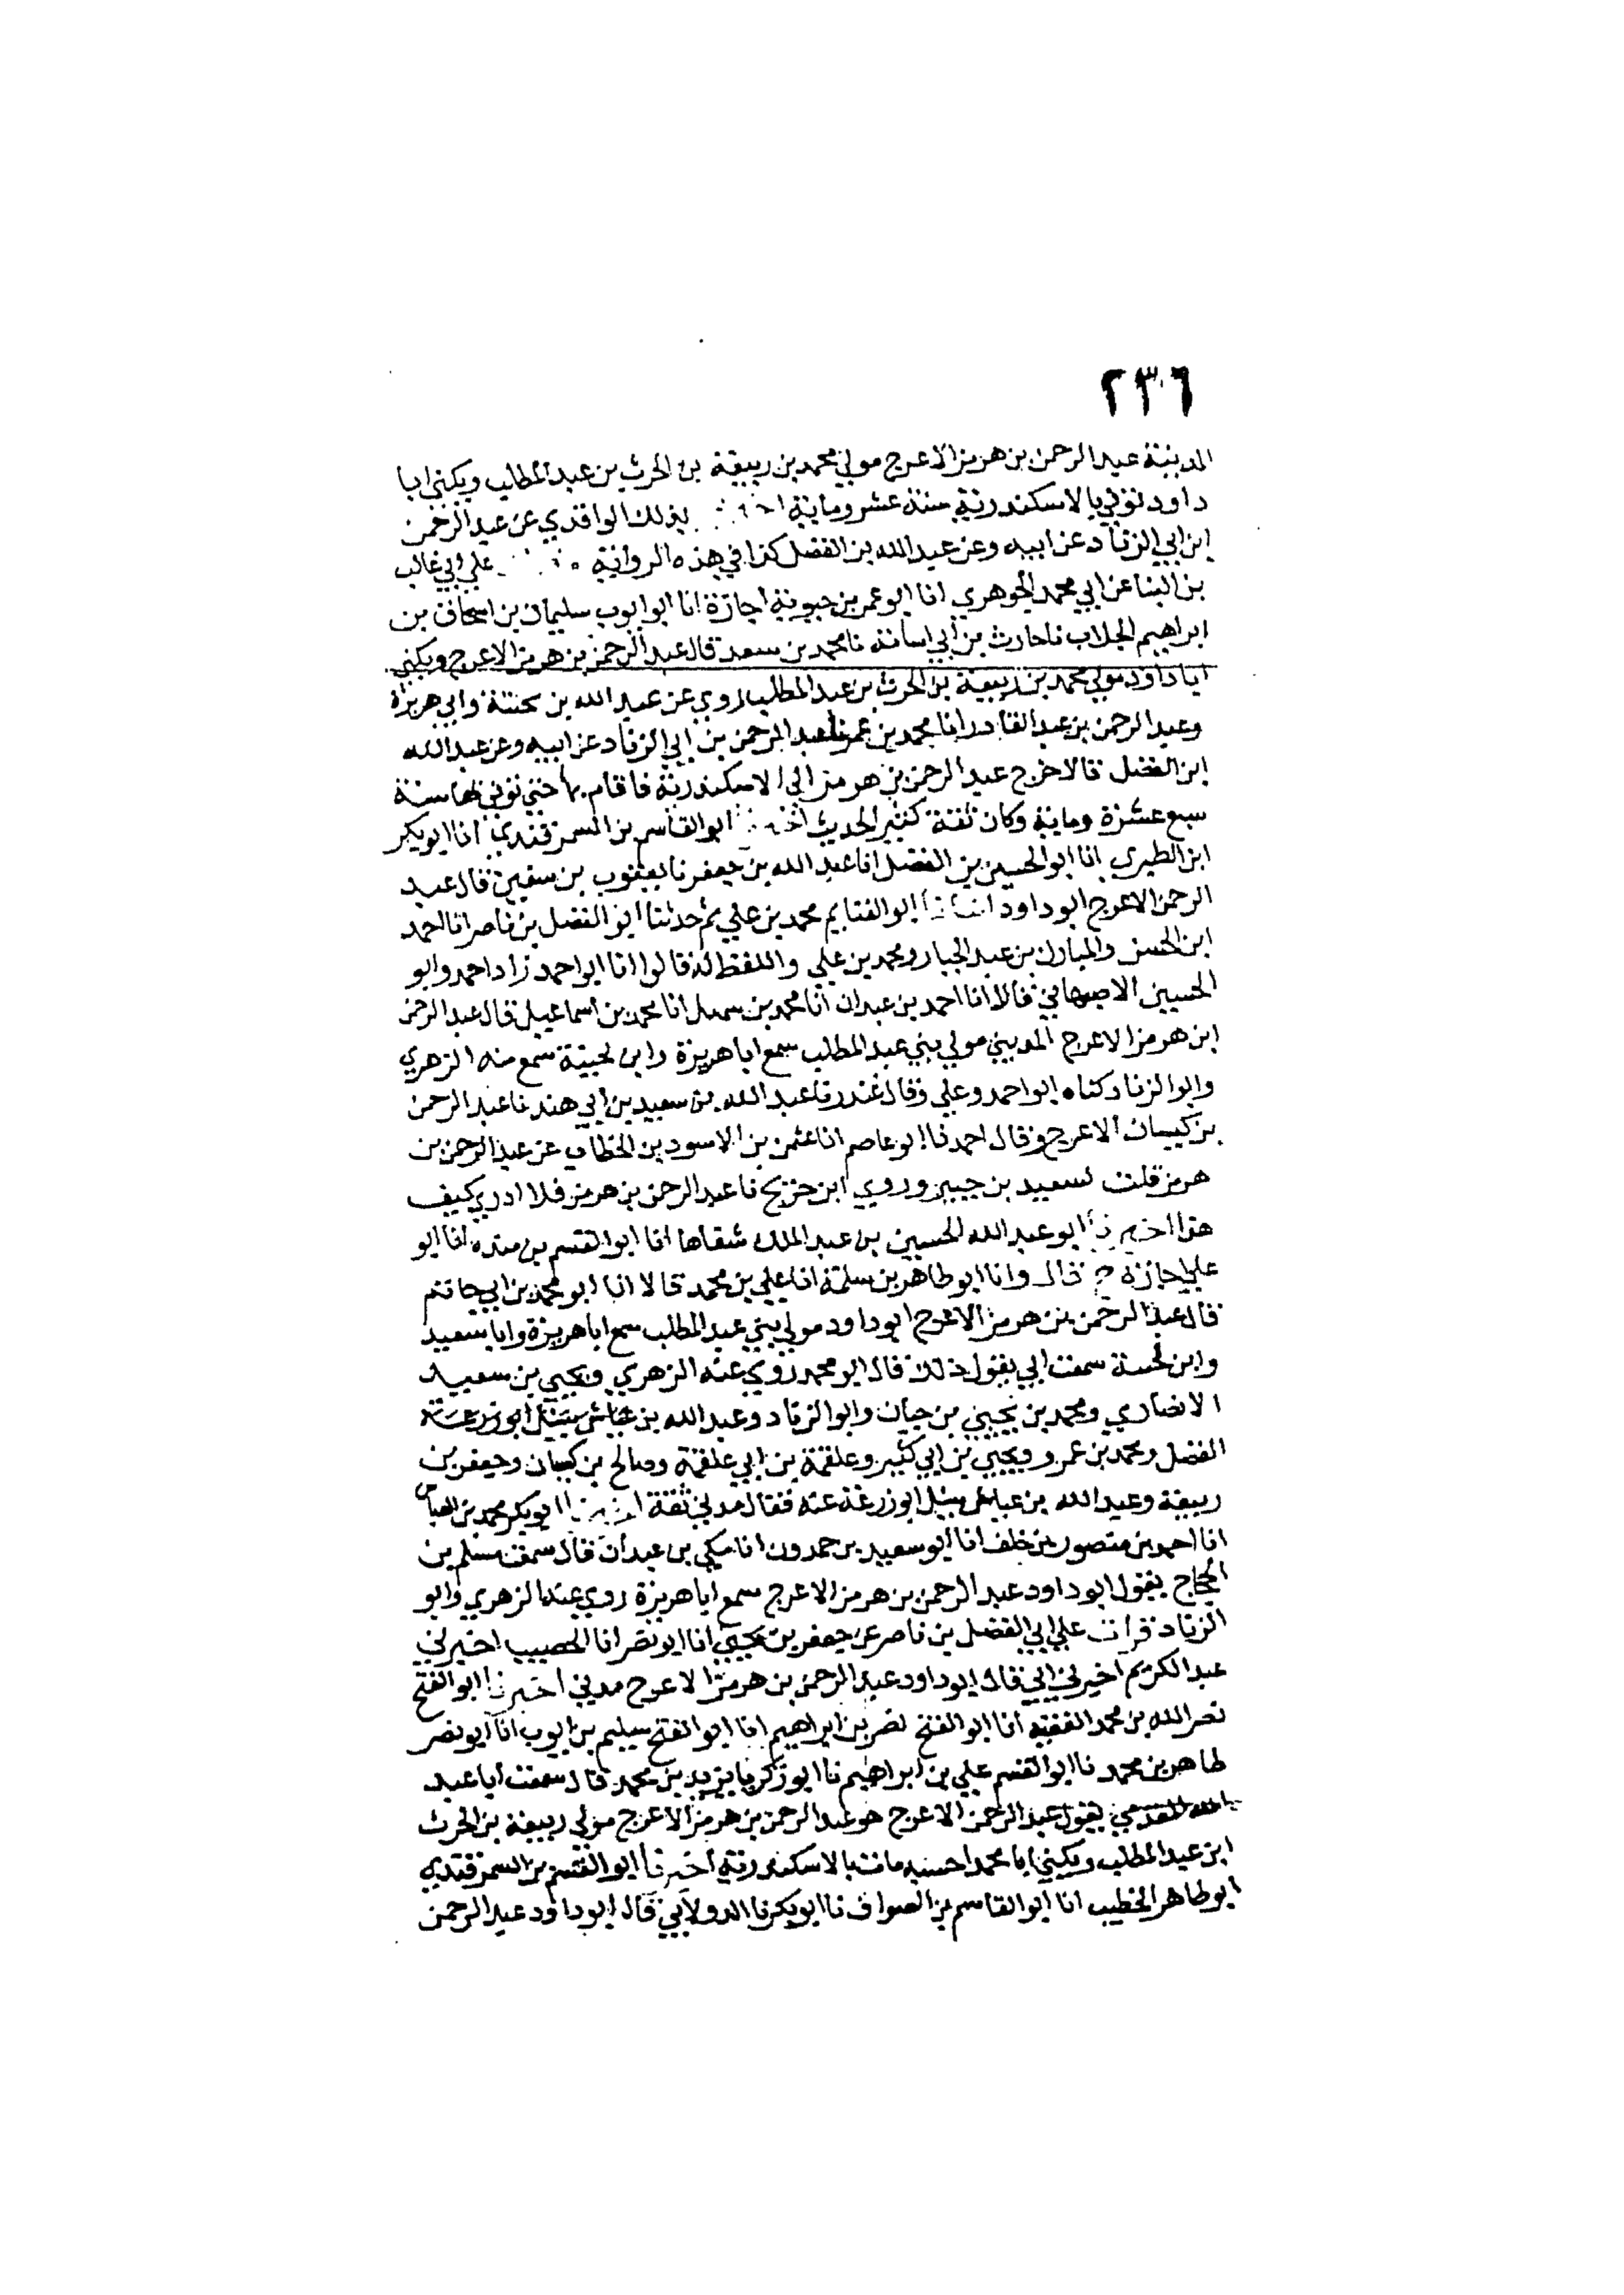 ٢٣٦
المدينة عبد الرحمن بن هرمز الاعرج مولي محمد بن ربيعة بن الحرث بن عبد المطلب ويكني ابا
داود توفي بالاسكندرية سنة عشر وماية بذلك الواقدي عن عبد الرحمن
ابن ابي الزناد عن ابيه وعن عبد الله بن الفضل كذا في هذه الرواية علي ابي غالب
بن البنا عن ابي محمد الجوهري انا ابو عمر بن حيوية اجازة انا ابو ايوب سليمان بن اسحاق بن
ابراهيم الجلاب نا حارث بن ابي اسامة نا محمد بن سعد قال عبد الرحمن بن هرمز الاعرج ويكني
ابا داود مولي محمد بن ربيعة بن الحرث بن عبد المطلب روي عن عبد الله بن بحينة وابي هريرة
وعبد الرحمن بن عبد القادر انا محمد بن عمر نا عبد الرحمن بن ابي الزناد عن ابيه وعن عبد الله
ابن الفضل قالا خرج عبد الرحمن بن هرمز الي الاسكندرية فاقام بها حتي توفي بها سنة
سبع عشرة وماية وكان ثقة كثير الحديث ابو القاسم بن السمرقندي انا ابو بكر
ابن الطبري انا ابو الحسين بن الفضل انا عبد الله بن جعفر نا يعقوب بن سفين قال عبد
الرحمن الاعرج ابو داود انبانا ابو الغنايم محمد بن علي ثم حدثنا ابو الفضل بن ناصر انا احمد
ابن الحسن والمبارك بن عبد الجبار ومحمد بن علي واللفظ له قالوا انا ابو احمد زاد احمد وابو
الحسين الاصبهاني قالا انا احمد بن عبدان انا محمد بن سهل انا محمد بن اسماعيل قال عبد الرحمن
ابن هرمز الاعرج المديني مولي بني عبد المطلب سمع ابا هريرة وابن بحينة سمع منه الزهري
وابو الزناد كناه ابو احمد وعلي وقال غندر نا عبد الله بن سعيد بن ابي هند نا عبد الرحمن
بن كيسان الاعرج وقال احمد نا ابو عاصم انا عثمن بن الاسود بن الخطاب عن عبد الرحمن بن
هرمز قلت لسعيد بن جبير وروي ابن جريج نا عبد الرحمن بن هرمز فلا ادري كيف
هذا اخبرنا ابو عبد الله الحسين بن عبد الملك شفاها انا ابو القسم بن منده انا ابو
علي اجازة ح قال وانا ابو طاهر بن سلمة انا علي بن محمد قالا انا ابو محمد بن ابي حاتم
قال عبد الرحمن بن هرمز الاعرج ابو داود مولي بني عبد المطلب سمع ابا هريرة وابا سعيد
وابن بحينة سمعت ابي يقول ذلك قال ابو محمد روي عنه الزهري ويحيي بن سعيد
الانصاري ومحمد بن يحيي بن حبان وابو الزناد وعبد الله بن
الفضل ومحمد بن عمرو ويحيي بن ابي كثير وعلقمة بن ابي علقمة وصالح بن كيسان وجعفر بن
ربيعة وعبد الله بن عياش سيل ابو زرعة عنه فقال مدني ثقة ابو بكر محمد بن العباس
انا احمد بن منصور بن خلف انا ابو سعيد بن حمدون انا مكي بن عبدان قال سمعت مسلم بن
الحجاج يقول ابو داود عبد الرحمن بن هرمز الاعرج سمع ابا هريرة روي عنه الزهري وابو
الزناد قرات علي ابي الفضل بن ناصر عن جعفر بن يحيي انا ابو نصر انا الخصيب اخبرني
عبد الكريم اخبرني ابي قال ابو داود عبد الرحمن بن هرمز الاعرج مديني اخبرنا ابو الفتح
نصر الله بن محمد الفقيه انا ابو الفتح نصر بن ابراهيم انا ابو الفتح سليم بن ايوب انا ابو نصر
طاهر بن محمد نا ابو القسم علي بن ابراهيم نا ابو زكريا يزيد بن محمد قال سمعت ابا عبد
الله المقدمي يقول عبد الرحمن الاعرج هو عبد الرحمن بن هرمز الاعرج مولي ربيعة بن الحرث
ابن عبد المطلب ويكني ابا محمد احسبه مات بالاسكندرية اخبرنا ابو القسم بن السمرقندي
ابو طاهر الخطيب انا ابو القاسم بن الصواف نا ابو بكر نا الدولابي قال ابو داود عبد الرحمن